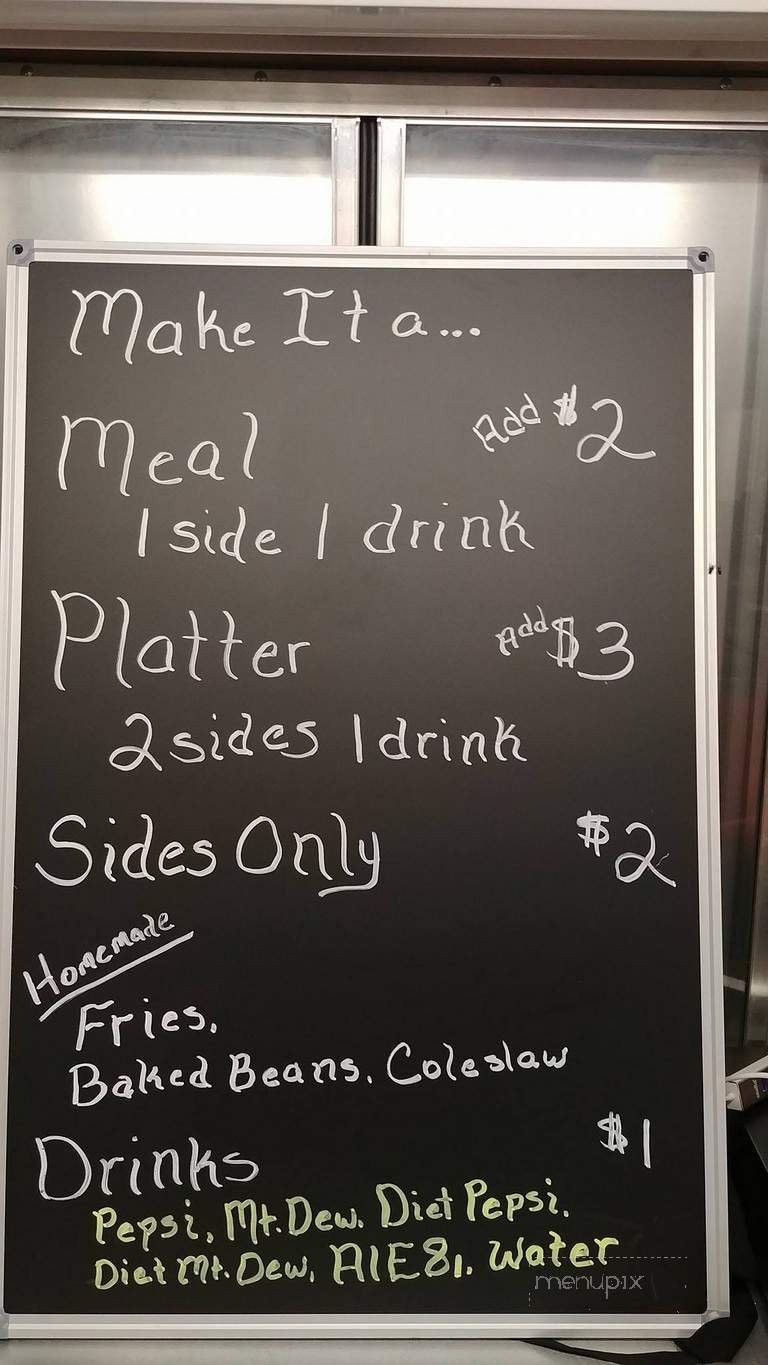 Make It a...
Meal Add $2
1 side 1 drink
Platter Add $3
2 sides 1 drink
Sides Only $2
Homemade
Fries,
Baked Beans, Coleslaw
Drinks $1
Pepsi, Mt. Dew, Diet Pepsi,
Diet Mt. Dew, AlE 81, Water
menupix